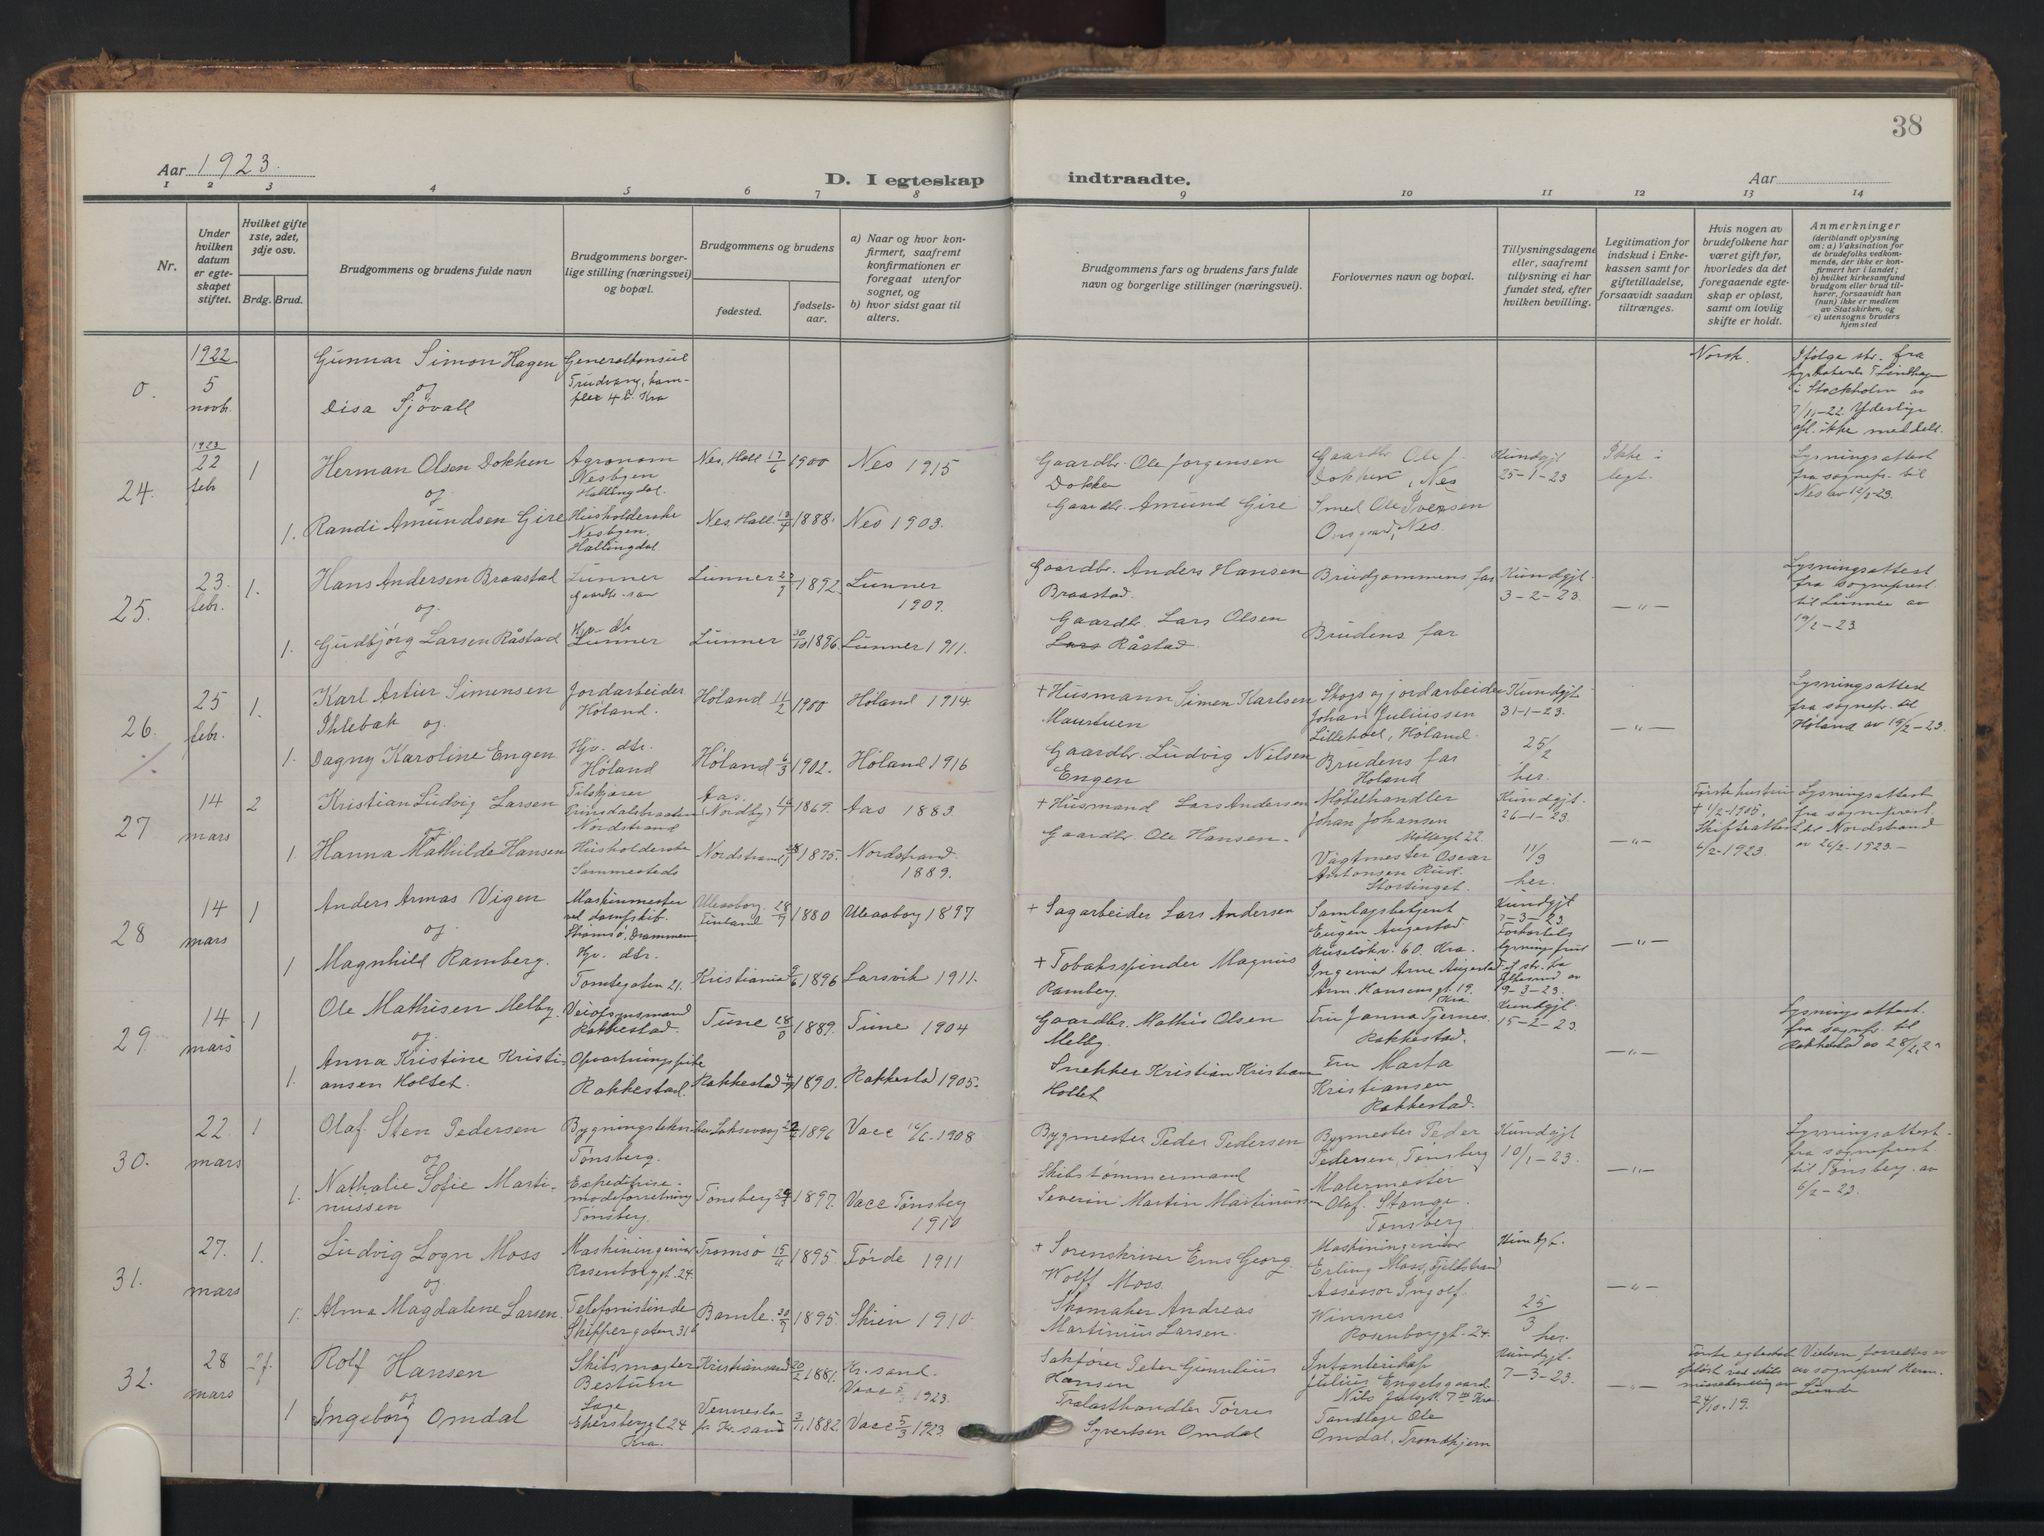 38
Aar 1923.
D. I egteskap indtraadte.
Aar
1 2 3 4 5 6 7 8 9 10 11 12 13 14
Nr.
Under hvilken datum er egteskapet stiftet.
Hvilket gifte 1ste, 2det, 3dje osv.
Brdg. Brud.
Brudgommens og brudens fulde navn
Brudgommens borgerlige stilling (næringsvei) og bopæl.
Brudgommens og brudens
fødested.
fødselsaar.
a) Naar og hvor konfirmert, saafremt konfirmationen er foregaat utenfor sognet, og
b) hvor sidst gaat til alters.
Brudgommens fars og brudens fars fulde navn og borgerlige stillinger (næringsvei).
Forlovernes navn og bopæl.
Tillysningsdagene eller, saafremt tillysning ei har fundet sted, efter hvilken bevilling.
Legitimation for indskud i Enkekassen samt for giftetilladelse, forsaavidt saadan tiltrænges.
Hvis nogen av brudefolkene har været gift før, hvorledes da det foregaaende egteskap er opløst, samt om lovlig skifte er holdt.
Anmerkninger
(deriblandt oplysning om: a) Vaksination for de brudefolks vedkommende, der ikke er konfirmert her i landet; b) hvilket kirkesamfund brudgom eller brud tilhører, forsaavidt han (hun) ikke er medlem av Statskirken, og c) utensogns bruders hjemsted
0. 1922 5 novbr.
Gunnar Simon Hagen
og
Disa Sjövall
Generalkonsul
4 b. Kra
Norsk.
Ifølge skr. fra
i Stockholm av
7/11-22. Yderlige
opl. ikke meddelt.
24. 1923 22 febr 1
Herman Olsen Dokken
og
1. Randi Amundsen Gire
Agronom
Nesbyen
Hallingdal.
Husholderske
Nesbyen.
Hallingdal.
Nes, Hall 17/6 1900 Nes 1915
Nes, Hall. 1888. Nes 1903.
Gaardbr. Ole Jorgensen
Dokken
Gaardbr. Amund Gire
Gaardbr Ole J.
Dokken, Nes
Smed Ole Iversen
Nes.
Kundgjt
25-1-23
Ikke i
legt.
Lysningsattest
fra sognepr. til
Nes av 12/2-23.
25. 23. febr. 1.
Hans Andersen Braastad
og
1. Gudbjørg Larsen Råstad
Lunner
Gaardbr. søn
Hjv. dtr
Lunner
Lunner 1892. Lunner
1907.
Lunner 30/10 1896. Lunner 1911.
Gaardbr. Anders Hansen
Braastad.
Gaardbr. Lars Olsen
Lars Råstad.
Brudgommens far
Brudens far
Kundgjt.
3-2-23.
—"—
Lysningsattest
fra sogneprest
til Lunner av
19/2-23
26. 25 febr. 1.
Karl Artur Simensen
Ihlebak og.
1. Dagny Karoline Engen
Jordarbeider
Høland.
Hjv. dtr.
Høland
Høland 11/2 1900 Høland 1914
Høland 6/3 1902. Høland 1916
+ Husmann Simen Karlsen
Gaardbr. Ludvig Nilsen
Engen
Skogs og jordarbeider
Johan Juliussen
Høland.
Brudens far
Høland
Kundgjt
31-1-23.
25/2
her.
—"—
Lysningsattest
fra sognepr. til
Høland av 19/2-23.
27 14 mars 2
Kristian Ludvig Larsen
og
1 Hanna Mathilde Hansen
Tilskjærer
Prinsdalsbraaten
Nordstrand
Husholderske
Sammesteds
Aas.
(Nordby) 1869. Aas 1883.
Nordstrand 1875. Nordstrand.
1889.
+ Husmand Lars Andersen
Gaardbr. Ole Hansen.
Møbelhandler
Johan Johansen
Møllergt 22.
Vagtmester Oscar
Antonsen Rud.
Stortinget.
Kundgjt.
26-1-23.
11/3
her.
—"—
Første hustru
+ 1/2-1905.
Skifteattest
6/2-1923.
Lysningsattest
fra sogneprest
til Nordstrand
av 26/2-1923.-
28 14 mars 1
Anders Armas Vigen
og
1 Magnhild Ramberg.
Maskinmester
ved dampskib.
Strømsø, Drammen
Hjv. dtr.
Tomtegaten 21.
Uleaaborg
Finland 28/9 1880 Uleaaborg 1897
Kristiania 9/6 1896 Larsvik 1911.
+ Sagarbeider Lars Andersen
+ Tobaksspinder Magnus
Ramberg.
Samlagsbetjent
Eugen Augestad
Ruseløkv. 60. Kra.
Ingeniør Arne Augestad
Arm. Hansens gt. 19.
Kra.
Kundgjt
7-3-23.
9-3-23.
—"—
29. 14 mars 1
Ole Mathisen Melby.
og
1. Anna Kristine Kristi-
ansen Holtet.
Veiopsynsmand
Rakkestad.
Opvartningspike
Rakkestad.
Tune 28/8 1889. Tune 1904
Rakkestad 1890. Rakkestad 1905.
Gaardbr. Mathis Olsen
Melby.
Snekker Kristian Kristians
Holtet
Fru Janna Tjernes.
Rakkestad.
Fru Marta
Kristiansen
Rakkestad.
Kundgjt
15-2-23.
—"—
Lysningsattest.
fra sognepr. til
Rakkestad av 28/2
30. 22. mars 1
Olaf Sten Pedersen
og
1. Nathalie Sofie Marti-
nussen
Bygningstekni
Tønsberg.
Expeditrise
modeforretning
Tønsberg.
1896 Vace 1908
Tønsberg 1897. Vace Tønsberg
1910
Bygmester Peder Pedersen
Skibstømmermand
Severin Martin Martinussen
Bygmester Peder
Pedersen, Tønsberg
Malermester
Olaf Stange
Tønsberg.
Kundgjt
10/1-23.
—"—
Lysningsattest
fra sogneprest
til Tønsberg. av
6/2-23.
31. 27. mars 1.
Ludvig Sogn Moss
og
1. Alma Magdalene Larsen.
Maskiningeniør
Rosenborggt. 24.
Telefonistinde
Skippergaten 31 b
Tromsø 1895. Førde 1911
Bamle. 30/9 1895. Skien 1910.
+ Sorenskriver Erns Georg.
Wolff Moss.
Skomaker Andreas
Martinius Larsen.
Maskiningeniør
Erling Moss,
Assessor Ingolf
Rosenborggt. 24.
25/3
her.
—"—
32. 28 mars 2 f.
Rolf Hansen
og
1 Ingeborg Omdal
Skibsmægler
Bestum
Læge
Ekersberggt 24
Kra.
Kristiansand 20/2 1881. Kr.sand.
Vace 1923.
Vennesla
pr. Kr.sand 3/11 1882. Vace 5/3 1923.
Sakfører Peter
Hansen
Trælasthandler Tørris
Syvertsen Omdal
Infanterikap
Julius Engelsgaard
Kra
Tandlæge Ole
Omdal, Trondhjem
Kundgjt.
7-3-23.
—"—
Første egteskab
24/10-19.
Vielsen forrettes av
av sogneprest Herm.
Lunde